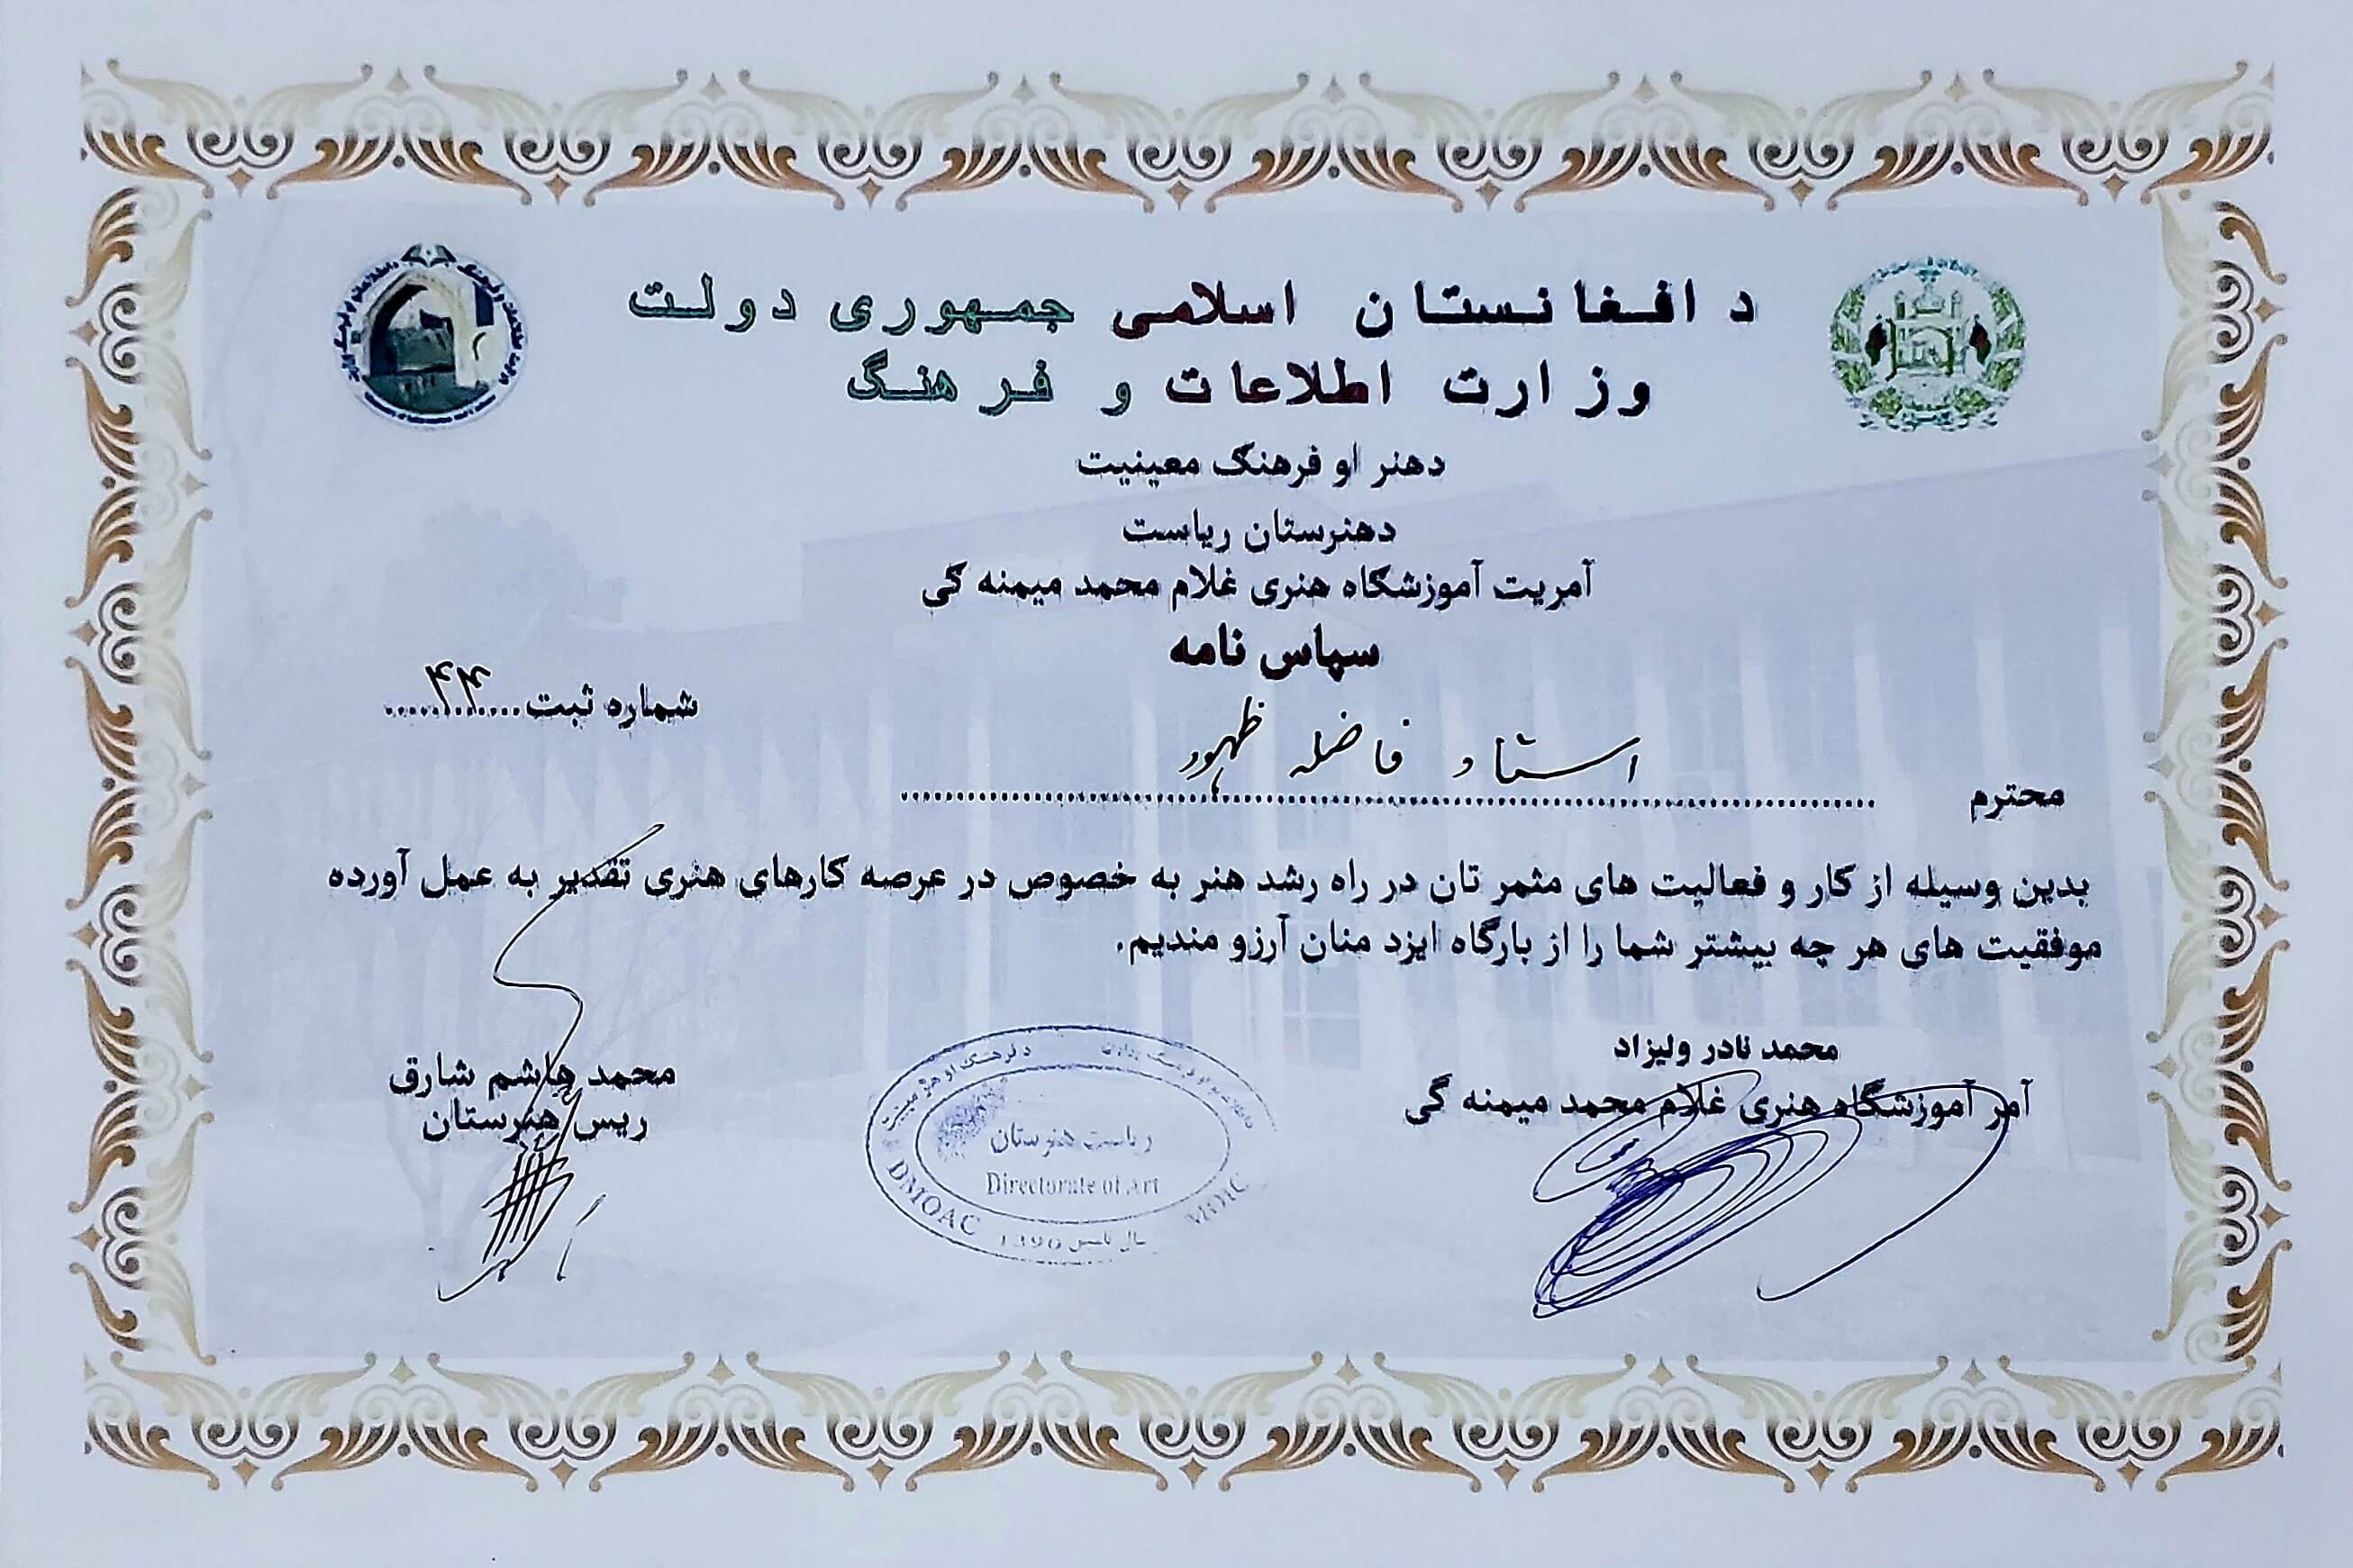 د افغانستان اسلامی جمهوری دولت
وزارت اطلاعات و فرهنگ
دهنر او فرهنگ معینیت
دهنرستان ریاست
آمریت آموزشگاه هنری غلام محمد میمنه گی
سپاس نامه
شماره ثبت ۴۴
محترم استاد فاضله ظهور
بدین وسیله از کار و فعالیت های مثمر تان در راه رشد هنر به خصوص در عرصه کارهای هنری تقدیر به عمل آورده
موفقیت های هر چه بیشتر شما را از بارگاه ایزد منان آرزو مندیم.
محمد نادر ولیزاد
آمر آموزشگاه هنری غلام محمد میمنه گی
محمد هاشم شارق
ریس هنرستان
ریاست هنرستان
Directorate of Art
DMOAC